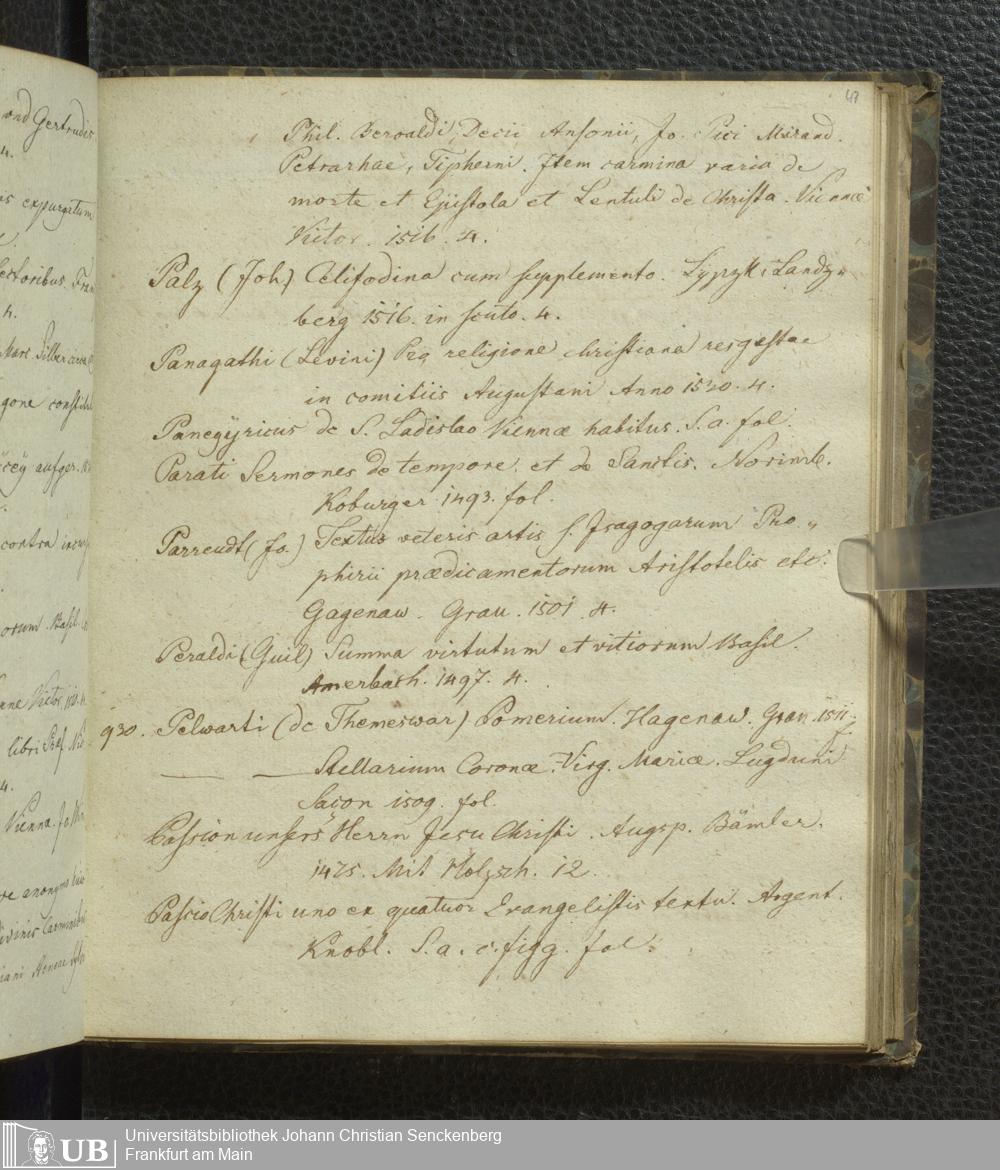 and Gertrudis
4.
expurgatum
4.
contra
Vienna.
47
Phil. Beroaldi, Decii Ansonii, Jo. Pici Mirand.
Petrarhae, Tipherni. Item carmina varia de
morte et Epistola et Lentuli de Christa. Viennae
Victor. 1516. 4.
Palz (Joh.) Celifodina cum supplemento. Lypzk: Landz„
berg 1516. in scuto. 4.
Panagathi (Levini) Pra religione christiana res gestae
in comitiis Augustani Anno 1530. 4.
Panegyricus de S. Ladislao Viennæ habitus. S. a. fol.
Parati Sermones de tempore et de Sanctis. Norimb.
Koburger 1493. fol.
Parreudt (Jo.) Textus veteris artis s. Isagogarum Pro„
phirii prædicamentorum Aristotelis etc.
Gagenaw. Grau. 1501. 4.
Peraldi (Guil) Summa virtutum et vitiorum Basil.
Amerbach. 1497. 4.
930. Pelwarti (de Themeswar) Pomerium. Hagenaw. Gran. 1511.
f.
— — Stellarium Coronæ. Virg. Mariæ. Lugduni
Sacon 1509. fol.
Passion unsers Herrn Jesu Christi. Augsp. Bämler.
1475. Mit Holzsch. 12.
Passio Christi uno ex quatuor Evangelistis textu. Argent.
Knobl. S. a. c. figg. fol.
UB
Universitätsbibliothek Johann Christian Senckenberg
Frankfurt am Main